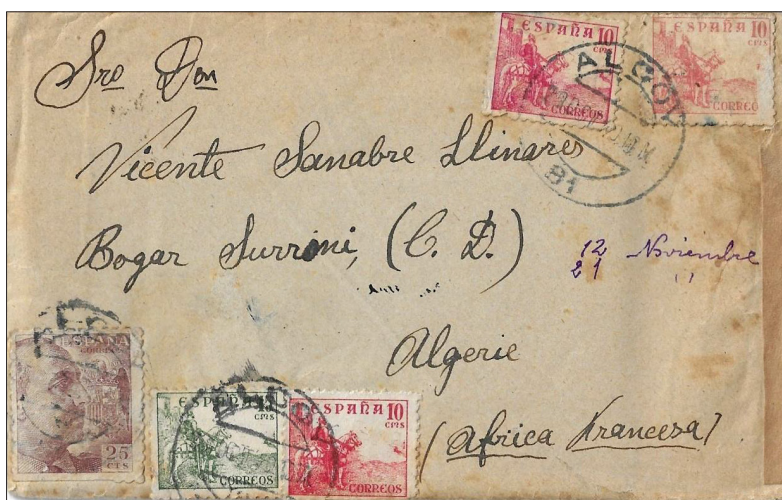 ESPAÑA 10 CMS CORREOS
ESPAÑA 10 CMS CORREO
ALCOY
B1
Sro Don
Vicente Sanabre Llinares
Bogar Surrini, (C. D.)
12 Noviembre
21 "
Algerie
(Africa Francesa)
ESPAÑA CORREOS 25 CTS
ESPAÑA 15 CMS CORREOS
ESPAÑA 10 CMS CORREOS
ALCOY